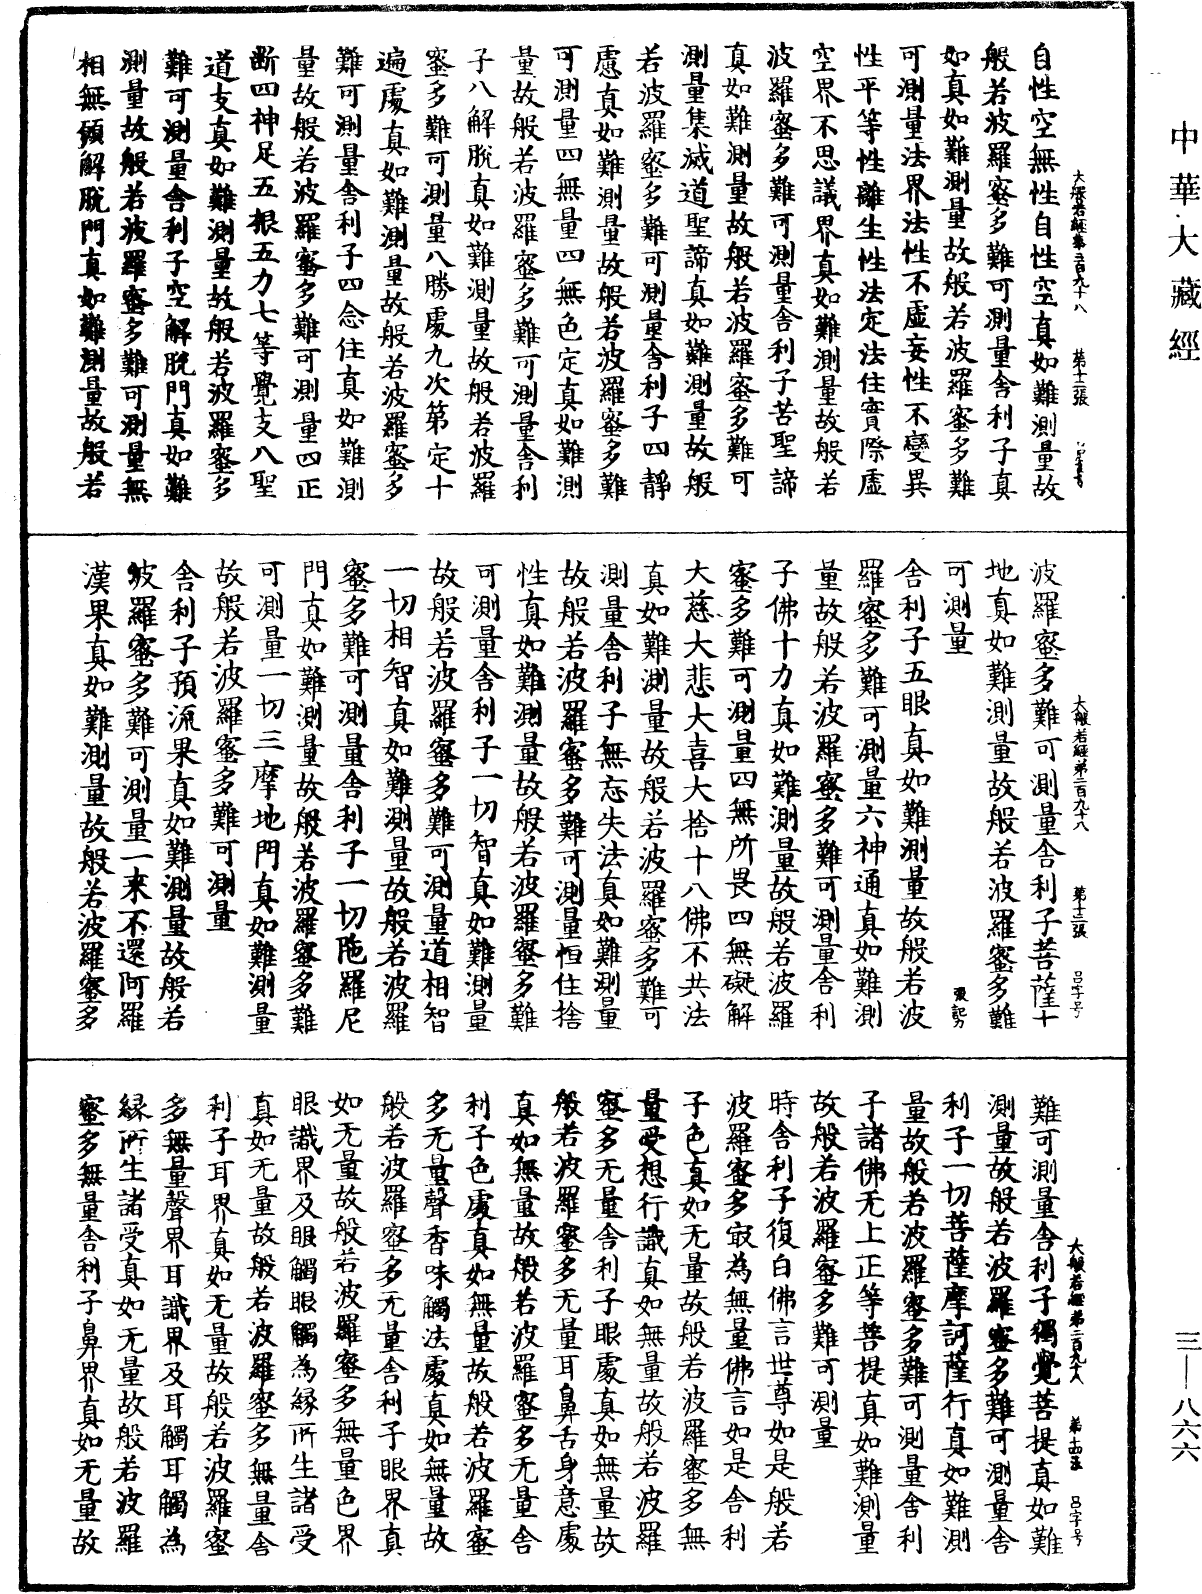 中華大藏經
大般若經第二百九十八 第十二張
自性空無性自性空真如難測量故
般若波羅蜜多難可測量舍利子真
如真如難測量故般若波羅蜜多難
可測量法界法性不虛妄性不變異
性平等性離生性法定法住實際虛
空界不思議界真如難測量故般若
波羅蜜多難可測量舍利子苦聖諦
真如難測量故般若波羅蜜多難可
測量集滅道聖諦真如難測量故般
若波羅蜜多難可測量舍利子四靜
慮真如難測量故般若波羅蜜多難
可測量四無量四無色定真如難測
量故般若波羅蜜多難可測量舍利
子八解脫真如難測量故般若波羅
蜜多難可測量八勝處九次第定十
遍處真如難測量故般若波羅蜜多
難可測量舍利子四念住真如難測
量故般若波羅蜜多難可測量四正
断四神足五根五力七等覺支八聖
道支真如難測量故般若波羅蜜多
難可測量舍利子空解脫門真如難
測量故般若波羅蜜多難可測量無
相無願解脫門真如難測量故般若
大般若經第二百九十八 第十三張 呂字号
波羅蜜多難可測量舍利子菩薩十
地真如難測量故般若波羅蜜多難
可測量
舍利子五眼真如難測量故般若波
羅蜜多難可測量六神通真如難測
量故般若波羅蜜多難可測量舍利
子佛十力真如難測量故般若波羅
蜜多難可測量四無所畏四無礙解
大慈大悲大喜大捨十八佛不共法
真如難測量故般若波羅蜜多難可
測量舍利子無忘失法真如難測量
故般若波羅蜜多難可測量恒住捨
性真如難測量故般若波羅蜜多難
可測量舍利子一切智真如難測量
故般若波羅蜜多難可測量道相智
一切相智真如難測量故般若波羅
蜜多難可測量舍利子一切陁羅尼
門真如難測量故般若波羅蜜多難
可測量一切三摩地門真如難測量
故般若波羅蜜多難可測量
舍利子預流果真如難測量故般若
波羅蜜多難可測量一来不還阿羅
漢果真如難測量故般若波羅蜜多
大般若經第二百九十八 第十四張 呂字号
難可測量舍利子獨覺菩提真如難
測量故般若波羅蜜多難可測量舍
利子一切菩薩摩訶薩行真如難測
量故般若波羅蜜多難可測量舍利
子諸佛无上正等菩提真如難測量
故般若波羅蜜多難可測量
時舍利子復白佛言世尊如是般若
波羅蜜多㝡為無量佛言如是舍利
子色真如无量故般若波羅蜜多無
量受想行識真如無量故般若波羅
蜜多无量舍利子眼處真如無量故
般若波羅蜜多无量耳鼻舌身意處
真如無量故般若波羅蜜多无量舍
利子色處真如無量故般若波羅蜜
多无量聲香味觸法處真如無量故
般若波羅蜜多无量舍利子眼界真
如无量故般若波羅蜜多無量色界
眼識界及眼觸眼觸為緣所生諸受
真如无量故般若波羅蜜多無量舍
利子耳界真如无量故般若波羅蜜
多無量聲界耳識界及耳觸耳觸為
緣所生諸受真如无量故般若波羅
蜜多無量舍利子鼻界真如无量故
三—八六六